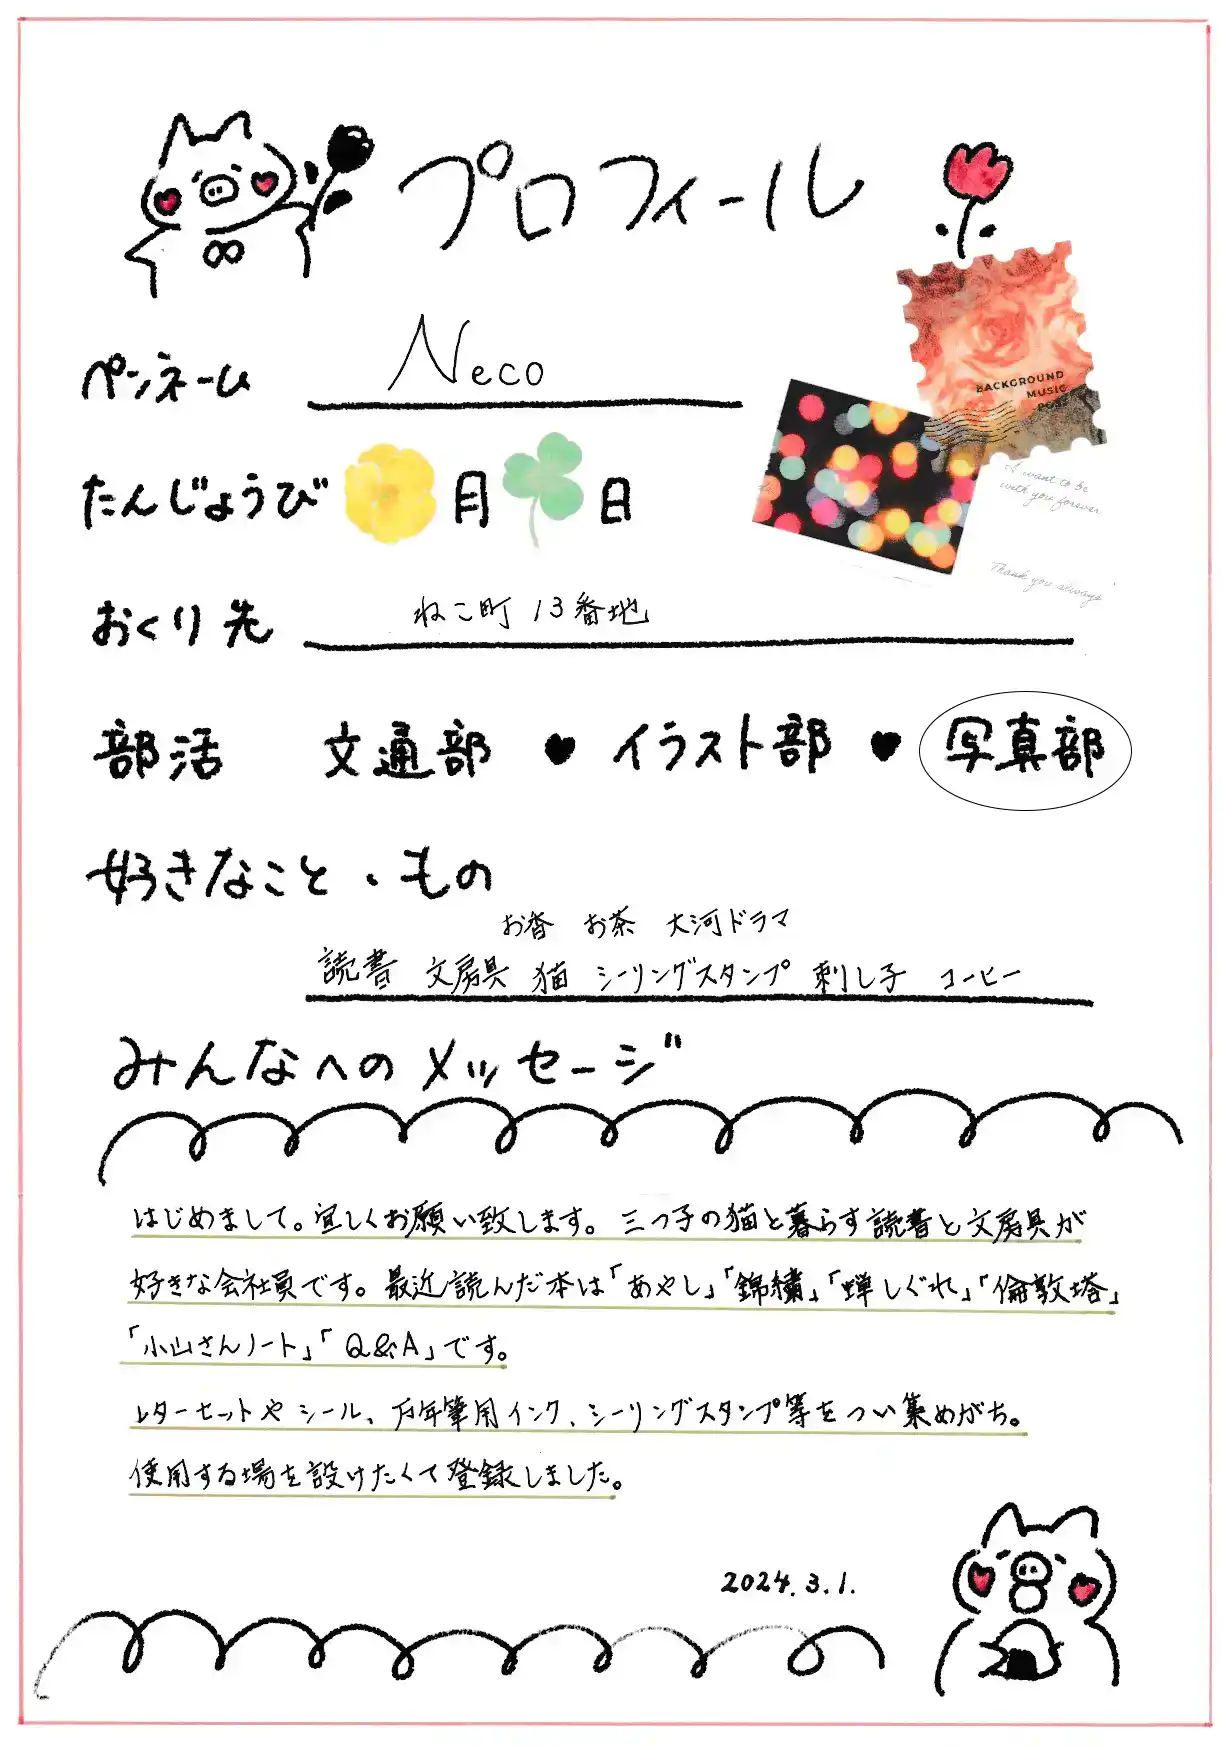 プロフィール
ペンネーム Neco
BACKGROUND
MUSIC
POST
たんじょうび 月 日
I want to be
with you forever
Thank you always
おくり先 ねこ町 13番地
部活 文通部 ♥ イラスト部 ♥ 写真部
好きなこと・もの
お香 お茶 大河ドラマ
読書 文房具 猫 シーリングスタンプ 刺し子 コーヒー
みんなへのメッセージ
はじめまして。宜しくお願い致します。三つ子の猫と暮らす読書と文房具が
好きな会社員です。最近読んだ本は「あやし」「錦繍」「蝉しぐれ」「倫敦塔」
「小山さんノート」「Q&A」です。
レターセットやシール、万年筆用インク、シーリングスタンプ等をつい集めがち。
使用する場を設けたくて登録しました。
2024.3.1.